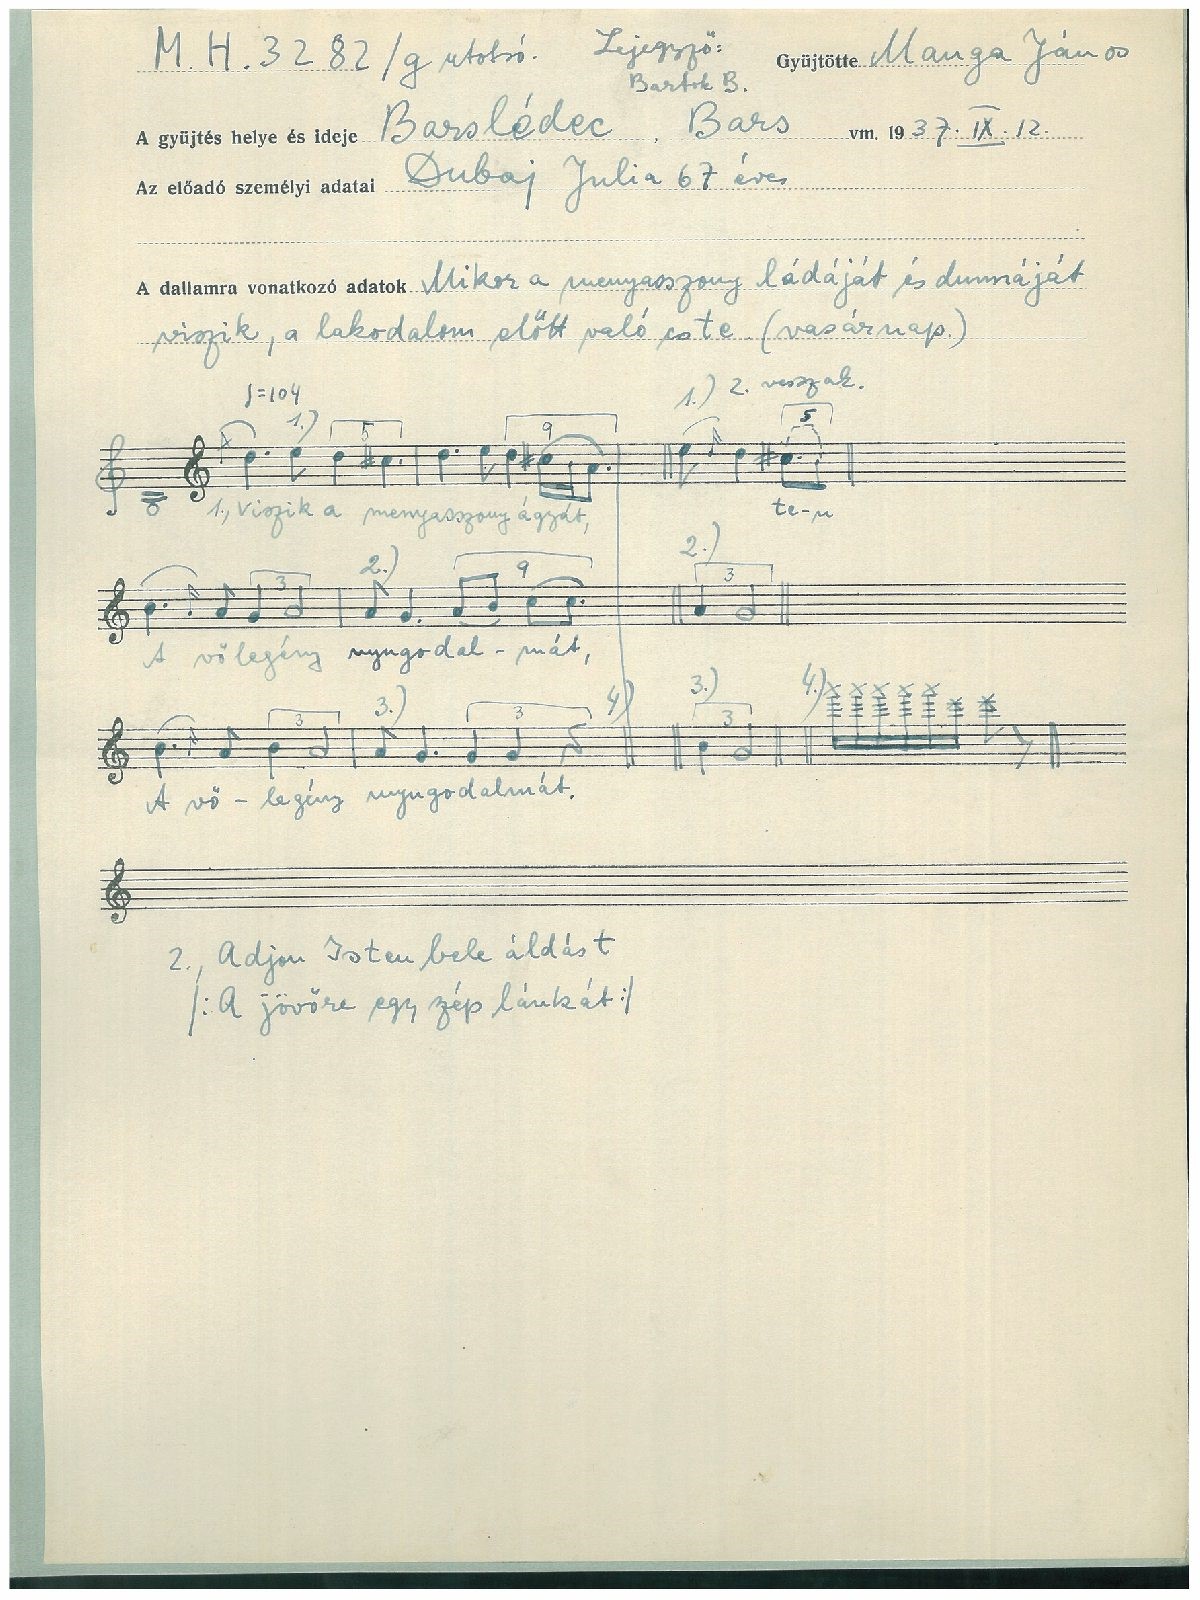 M. H. 3282/g utolsó. Lejegyző: Gyüjtötte Manga János
Bartók B.
A gyűjtés helye és ideje Barslédec, Bars vm. 1937. IX. 12.
Az előadó személyi adatai Dubaj Julia 67 éves
A dallamra vonatkozó adatok Mikor a menyasszony ládáját és dunnáját
viszik, a lakodalom előtt való este. (vasárnap.)
♩=104 1.) 5 9 1.) 2. verszak. 5
1., Viszik a menyasszony ágyát, te-n
3 2.) 9 2.) 3
A vőlegény nyugodal-mát,
3 3.) 3 4) 3.) 3 4.)
A vő-legény nyugodalmát.
2., Adjon Isten bele áldást
/: A jövőre egy zép lánkát :/